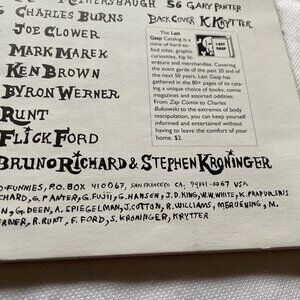 MOTHERSBAUGH 56 GARY PANTER
CHARLES BURNS
BACK COVER K.KRYTTER
JOE CLOWER
MARK MAREK
KEN BROWN
BYRON WERNER
RUNT
FLICK FORD
BRUNO RICHARD & STEPHEN KRONINGER
The Last
Gasp Catalog is a
mine of hard-to-
find comics,
graphic, curiosities, fiction, big
literature and merchandise. Covering
the avant garde of the past 20 and of
the next 50 years, Last Gasp has
gathered in the broadest range of a
unique choice of books, comics
magazine assorted and oddities.
From Zap Comix to Charles
Bukowski to the extremes of body
manipulation, you can keep yourself
informed and entertained without
having to leave the comfort of your
home. $2.
LAST GASP
O-FUNNIES, P.O. BOX 410067, SAN FRANCISCO CA. 94141-0067 USA
CHARD, G.PANTER, G.FUJII, G.HANSEN, J.D.KING, W.W.WHITE, K.
N, G.DEEN, A.SPIEGELMAN, J.COTTON, R.WILLIAMS, M.
ERNER, R.RUNT, F.FORD, S.KRONINGER, KRYTTER